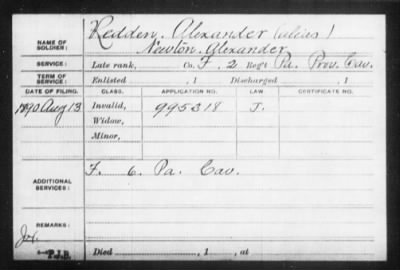 NAME OF SOLDIER: Redden, Alexander (alias)
Newton, Alexander
SERVICE: Late rank, Co. F, 2 Reg't Pa. Prov. Cav.
TERM OF SERVICE: Enlisted , 1 Discharged , 1
DATE OF FILING. CLASS. APPLICATION NO. LAW. CERTIFICATE NO.
1890 Aug 13 Invalid, 995318 J.
Widow,
Minor,
ADDITIONAL SERVICES: F. 6. Pa. Cav.
REMARKS:
Died , 1 , at